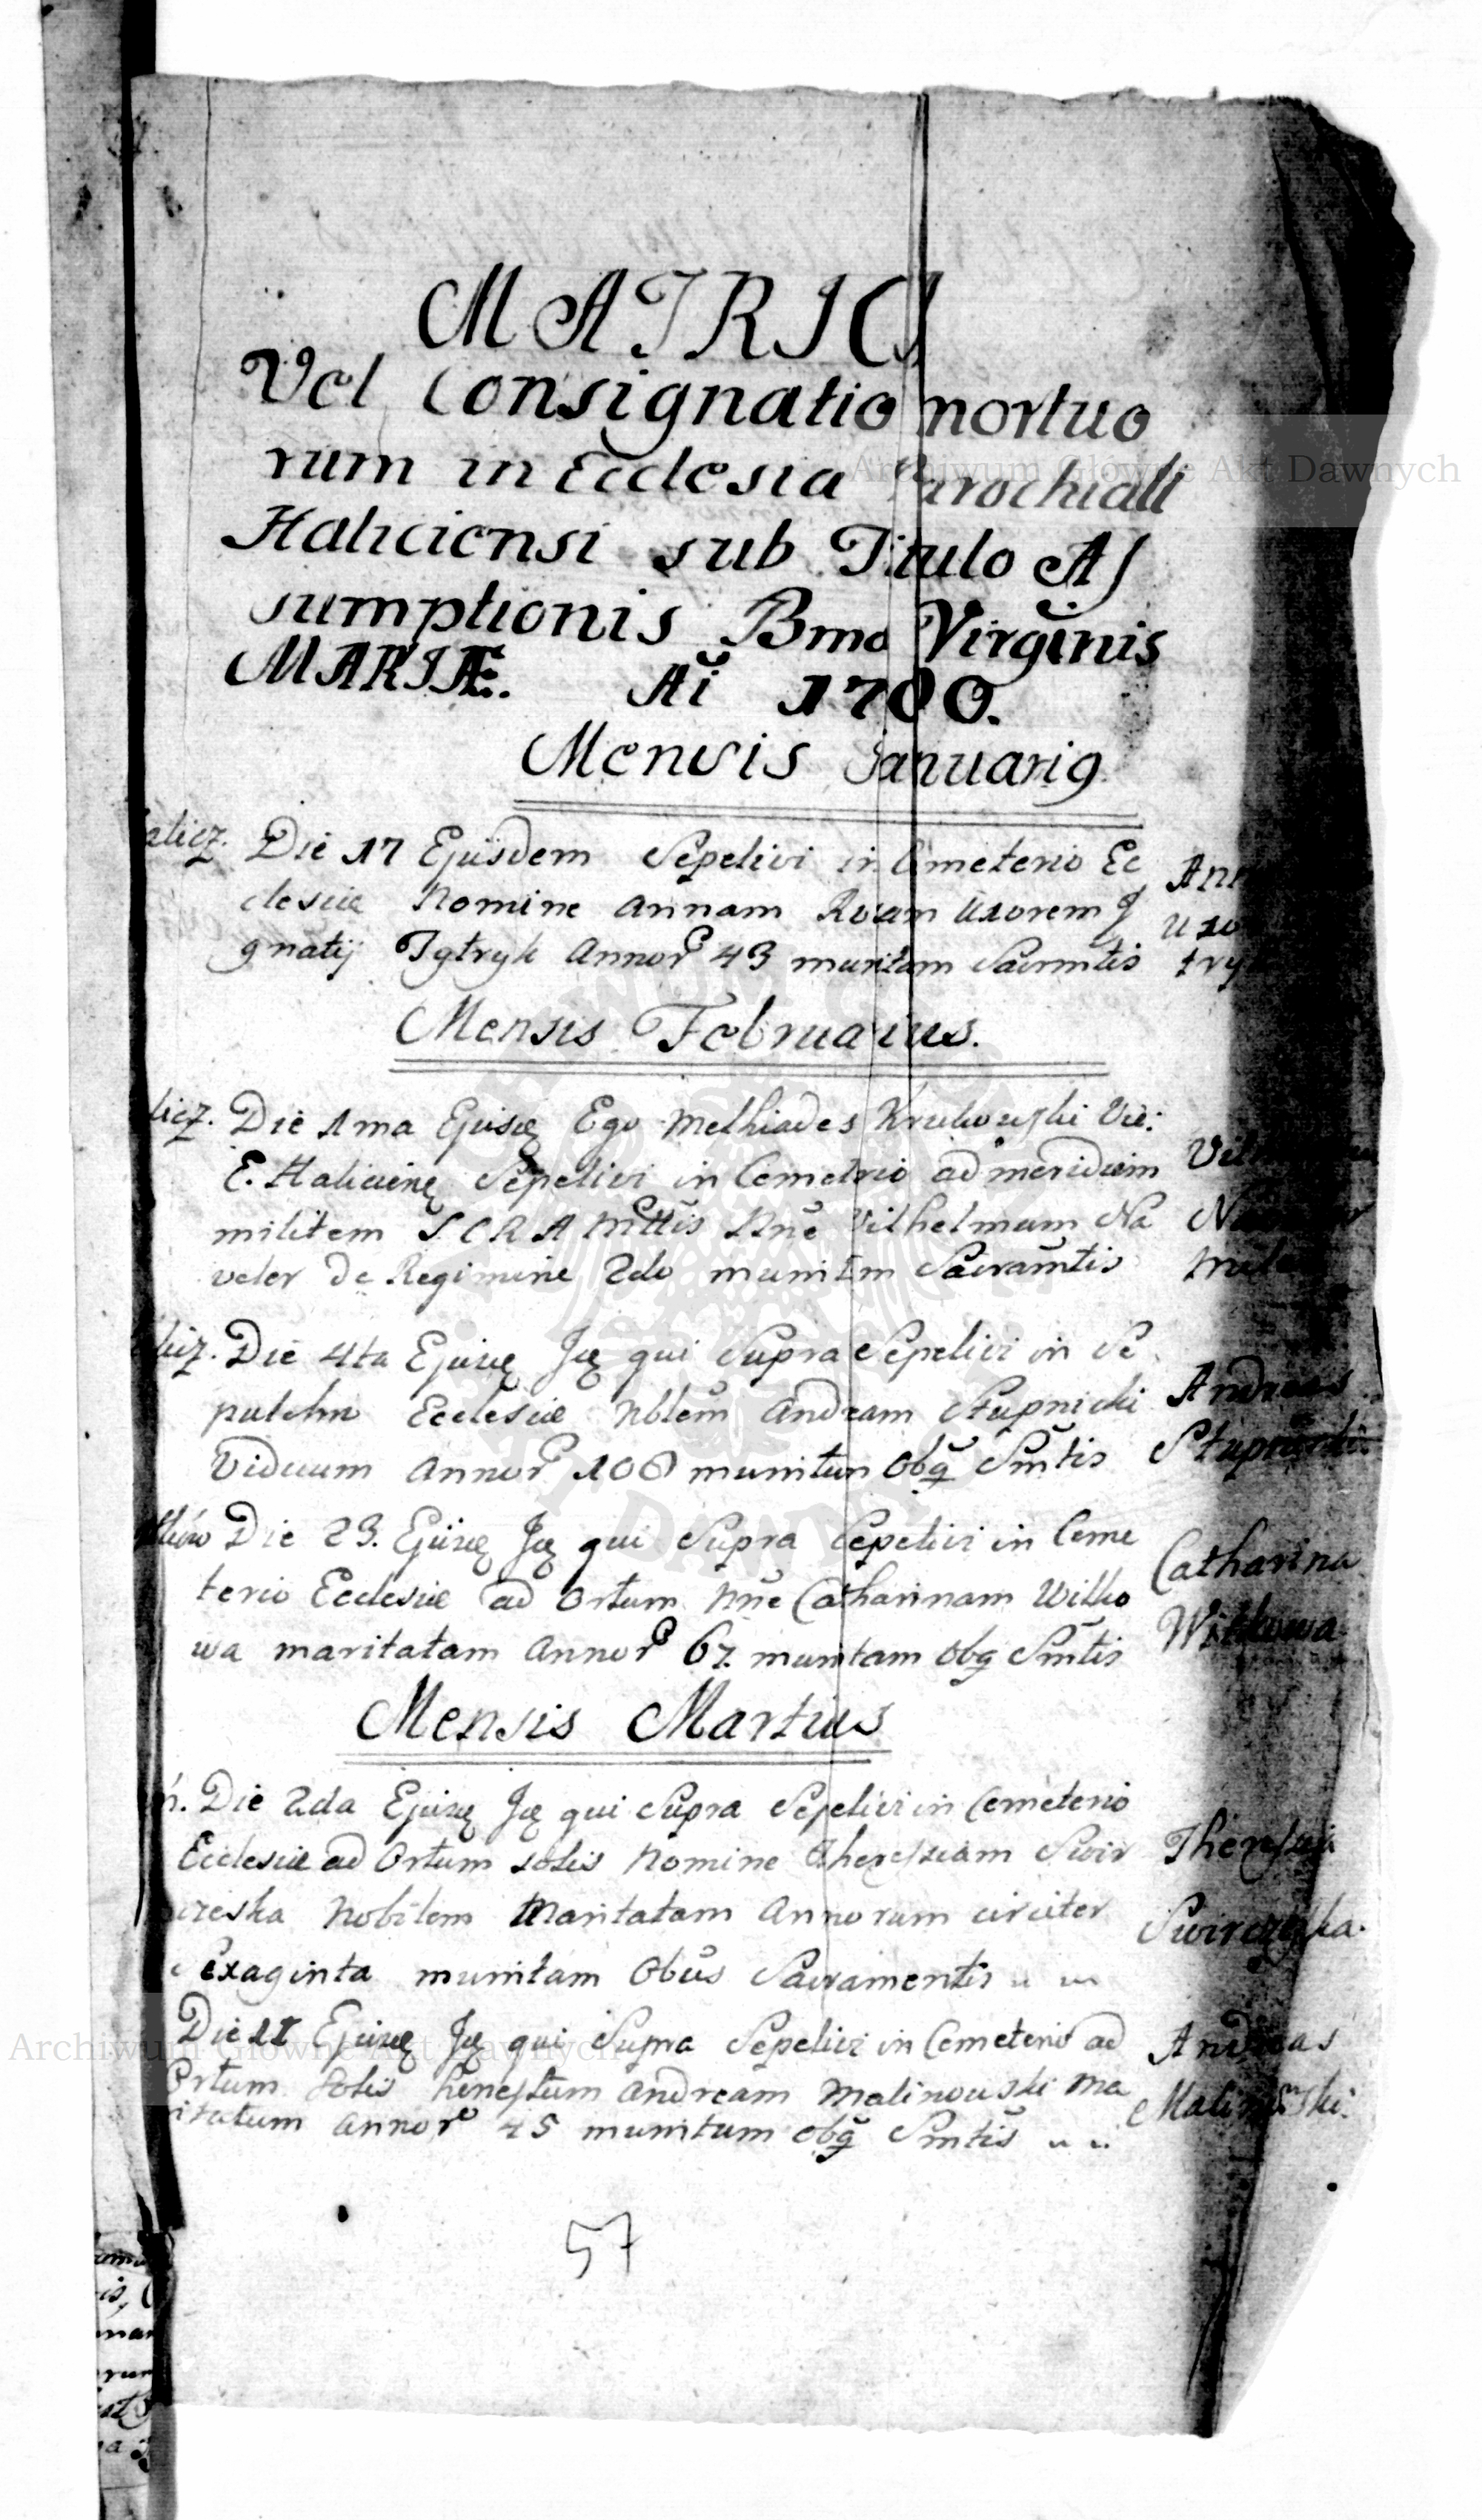 MATRICA
Vel Consignatio mortuo
rum in Ecclesia Parochiali
Haliciensi sub Titulo As
sumptionis Bmæ Virginis
MARIÆ. Ai 1780.
Mensis Januarig
alicz. Die 17 Ejusdem Sepelivi in Cmeterio Ec
clesiæ Nomine Annam Rozam Uxorem J
gnatij Annor 43 munitam Sacrmtis
Ann
Uxo
try
Mensis Februarius.
licz. Die 1ma Ejusę Ego Melhiades Krukowski Vic:
E. Halicienę Sepelivi in Cemetrio ad meridiem
militem S C R A Mttis Nne Vilhelmum Na
veler de Regimine 2do munitm Sacramtis
licz. Die 4ta Ejusę Ję qui Supra Sepelivi in Se
pulchro Ecclesiæ Nblem Andream Stupnicki
Viduum Annor 100 munitum Obq Smtis
Andreas
Stupnicki
Die 23. Ejusę Ję qui Supra Sepelivi in Ceme
terio Ecclesiæ ad Ortum Nne Catharinam Witko
wa maritatam Annor 67. munitam Obq Smtis
Catharina
Witkowa
Mensis Martius
Die 2da Ejusę Ję qui Supra Sepelivi in Cemeterio
Ecclesiæ ad Ortum solis Nomine Theresziam Swir
czeska Nobilem Maritatam Annorum circiter
Sexaginta munitam Obus Sacramentis
Thereszia
Swirczeska.
Die 11 Ejusę Ję qui Supra Sepelivi in Cemeterio ad
Ortum Solis honestum Andream Malinowski Ma
ritatum Annor 45 munitum obq Smtis
Andreas
Malinowski.
57
Archiwum Główne Akt Dawnych
Archiwum Główne Akt Dawnych